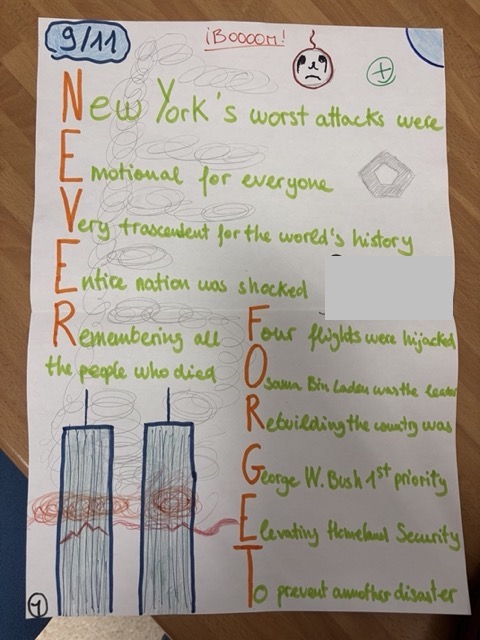 9/11
¡BOOOOM!
New York's worst attacks were
Emotional for everyone
Very trascendent for the world's history
Entire nation was shocked
Remembering all
the people who died
Four flights were hijacked
Osama Bin Laden was the leader
Rebuilding the country was
George W. Bush 1st priority
Elevating Homeland Security
To prevent annother disaster